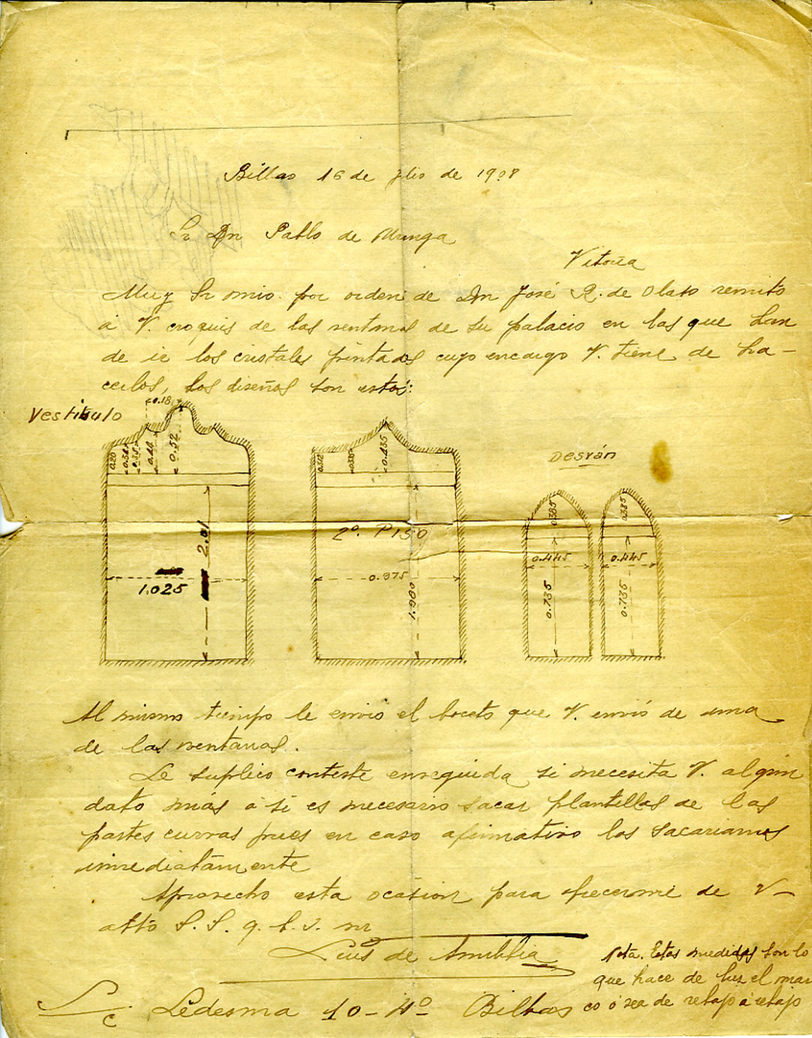 Bilbao 16 de Julio de 1908
Sr Dn Pablo de
Vitoria
Muy Sr mio: por orden de Dn José R. de Olaso remito
á V. croquis de las ventanas de su palacio en las que han
de ir los cristales pintados cuyo encargo V. tiene de ha-
cerlos, los diseños son estos:
Vestibulo
0.18
0.20
0.52
2.01
1.025
0.435
2º. PISO
0.975
1.980
Desván
0.385
0.385
0.445
0.445
0.735
0.735
Al mismo tiempo le envio el boceto que V. envió de una
de las ventanas.
Le suplico conteste enseguida si necesita V. algún
dato más ó si es necesario sacar plantillas de las
partes curvas pues en caso afirmativo las sacariamos
inmediatamente
Aprovecho esta ocasion para ofrecerme de V
atto S. S. q. b. s. m
Luis de
Nota. Estas medidas son lo
que hace de luz el mar
co ó sea de rebajo á rebajo
S/c Ledesma 10-4º Bilbao